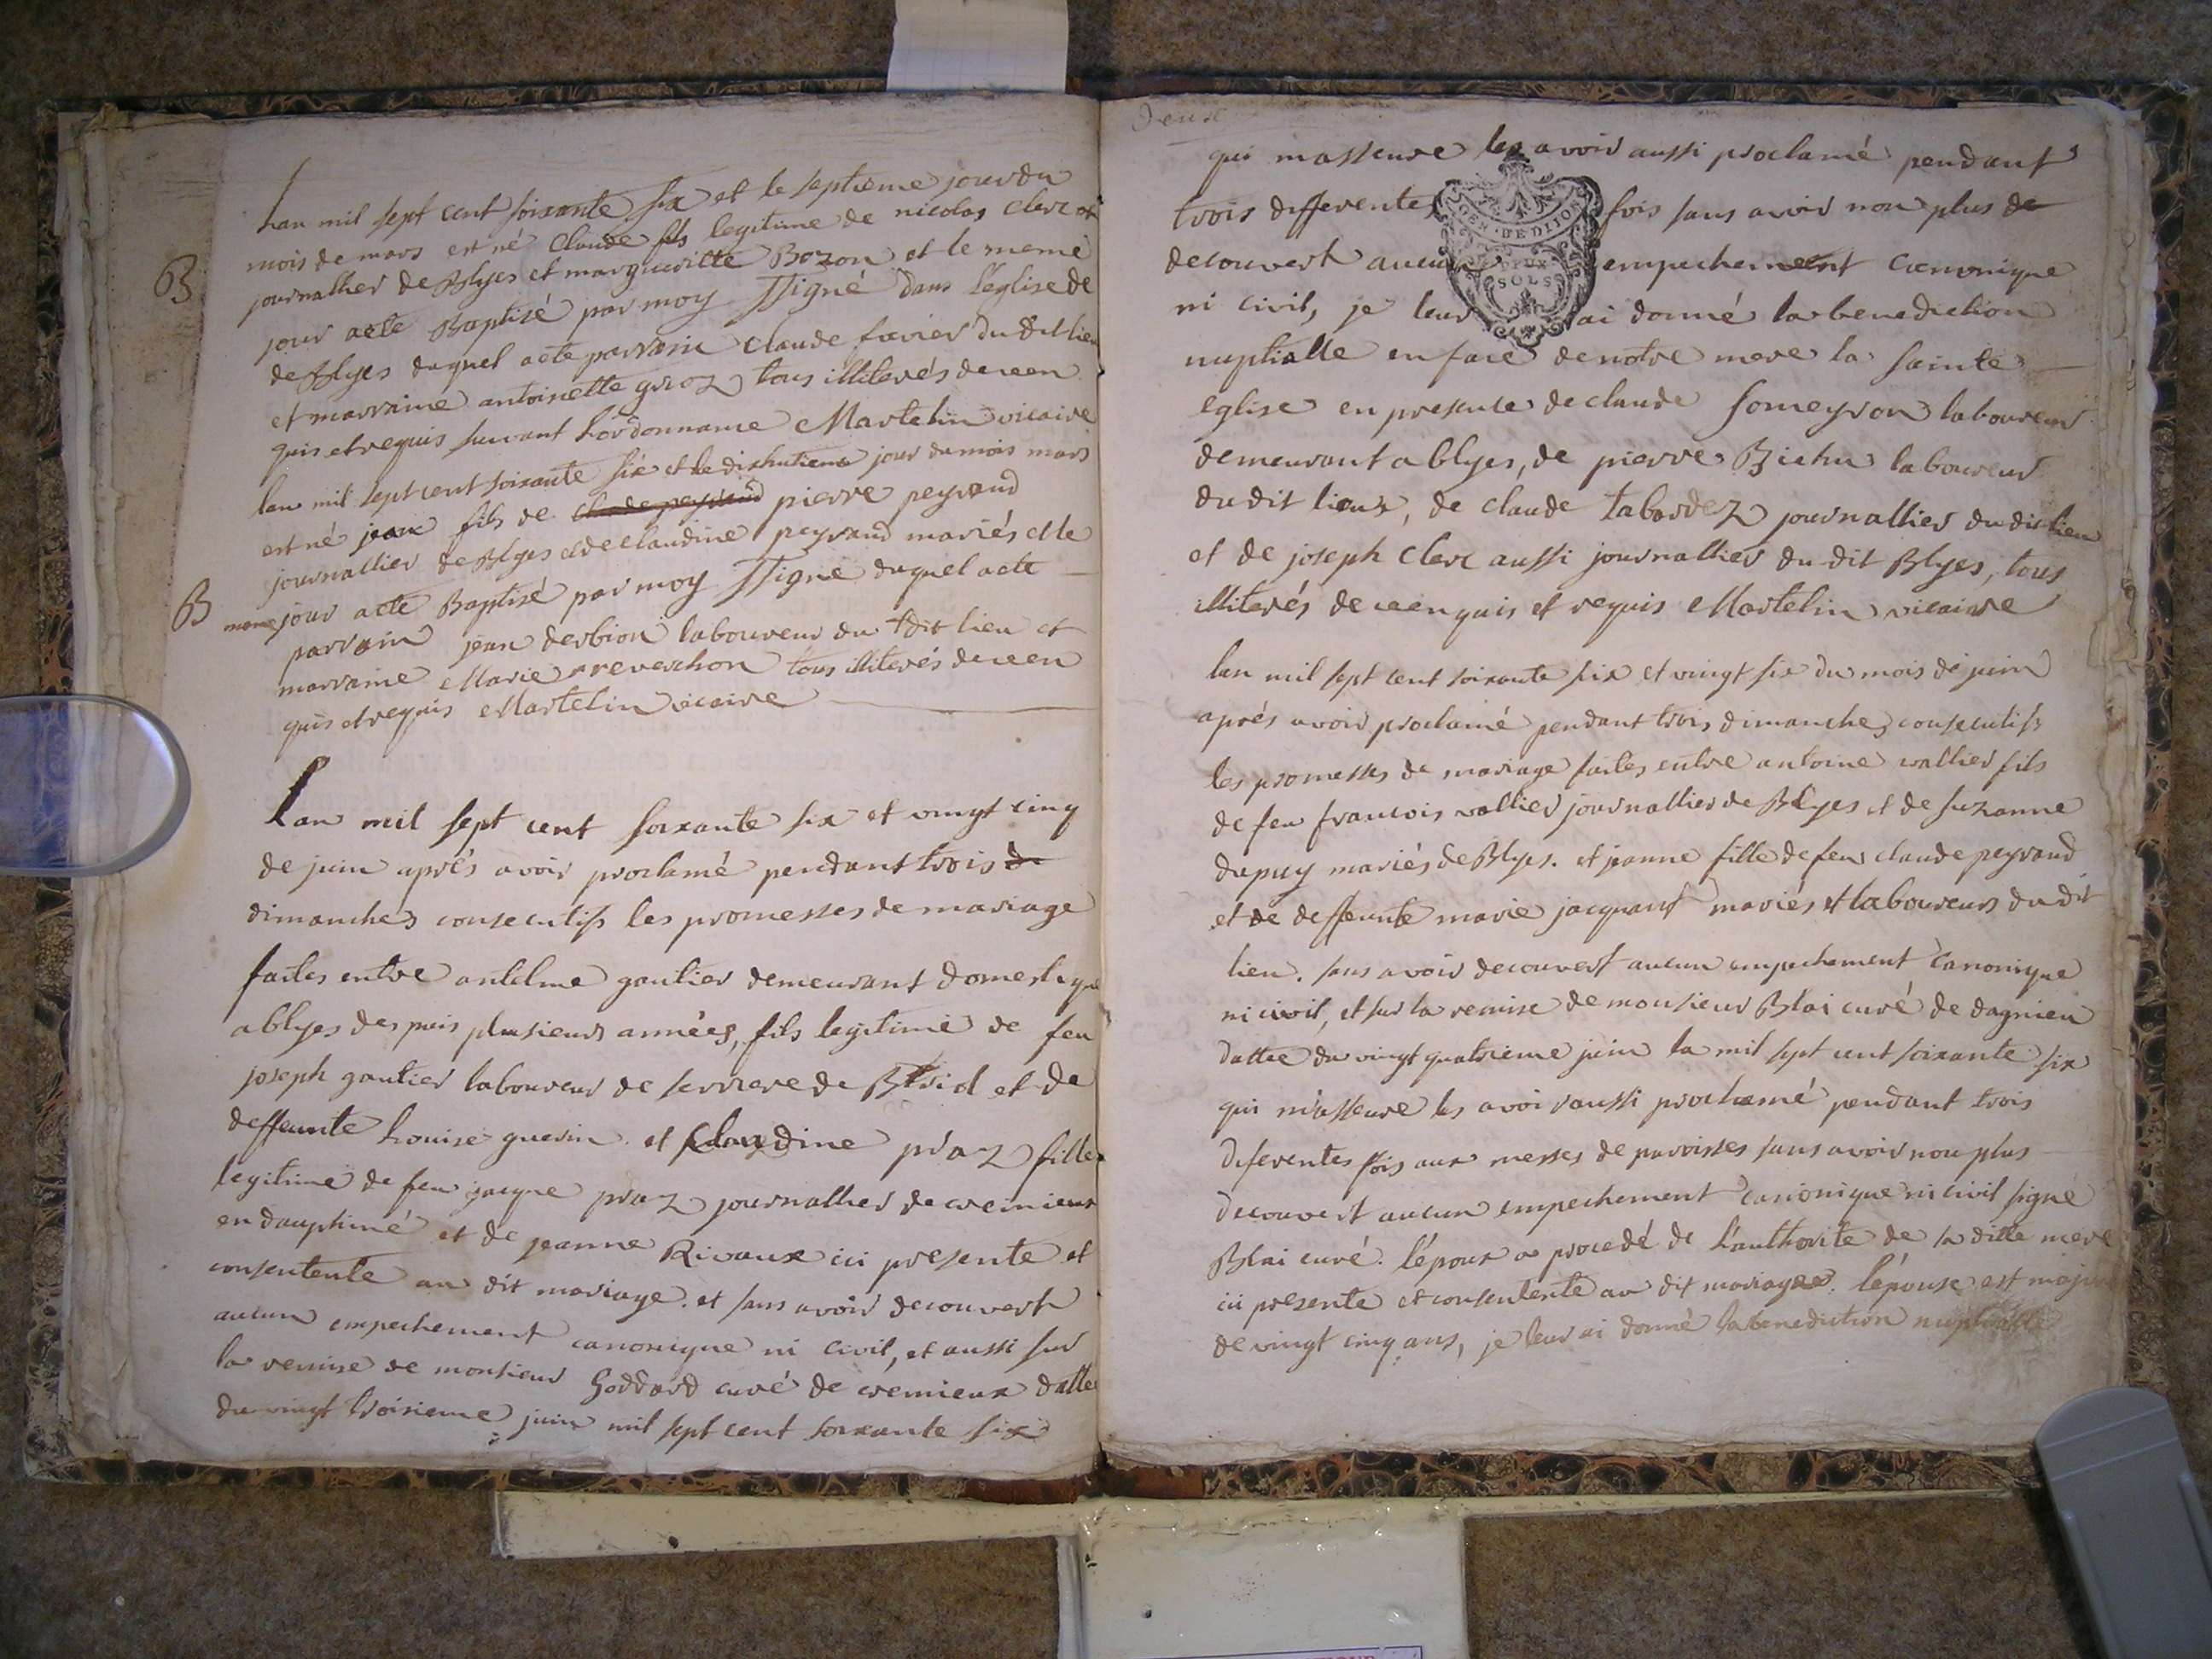 lan mil sept cent soixante six et le septieme jour du
mois de mars est né Claude fils legitime de nicolas clerc
journallier de Blyes et margueritte Bozon et le meme
B
jour acte Baptisé par moy ssigné dans l'eglise de
de Blyes duquel acte parrain claude favier du dit lieu
et marraine antoinette groz tous illiterés de ce en
quis et requis suivant lordonnance Martelin vicaire
lan mil sept cent soixante six et le dixhutieme jour du mois mars
est né jean fils de claude peyraud pierre peyraud
journallier de Blyes et de claudine peyraud mariés et le
B meme jour acte Baptisé par moy ssigné duquel acte
parrain jean derbion laboureur du dit lieu et
marraine Marie reverchon tous illiterés de ce en
quis et requis Martelin vicaire
Lan mil sept cent soixante six et vingt cinq
de juin aprés avoir proclamé pendant trois de
dimanches consecutifs les promesses de mariage
faites entre antelme gautier demeurant domestique
a blyes despuis plusieurs années, fils legitime de feu
joseph gautier laboureur de serriere de Briol et de
deffeunte Louise guerin et Claudine praz fille
legitime de feu jacque praz journallier de cremieux
en dauphiné et de jeanne Rivaux ici presente et
consentente au dit mariage. et sans avoir decouvert
aucun empechement canonique ni civil, et aussi sur
la remise de monsieur Goddard curé de cremieux datté
du vingt troisieme juin mil sept cent soixante six
Deux
qui masseure les avoir aussi proclamé pendant
trois differentes fois sans avoir non plus de
GEN. DE DIJON
decouvert aucun empechement canonique
DEUX
SOLS
ni civil, je leur ai donné la benediction
nuptialle en face de notre mere la sainte
eglise en presence de claude someyron laboureur
demeurant a blyes, de pierre Biehn laboureur
du dit lieux, de claude tabardez journallier du dit lieu
et de joseph Clerc aussi journallier du dit Blyes, tous
illiterés de ce enquis et requis Martelin vicaire
lan mil sept cent soixante six et vingt six du mois de juin
aprés avoir proclamé pendant trois dimanches consecutifs
les promesses de mariage faites entre antoine vallier fils
de feu francois vallier journallier de Blyes et de suzanne
dupuy mariés de Blyes. et jeanne fille de feu claude peyraud
et de deffeunte marie jacquant mariés et laboureurs du dit
lieu. sans avoir decouvert aucun empechement canonique
ni civil, et sur la remise de monsieur Blai curé de dagnieu
dattee du vingt quatrieme juin la mil sept cent soixante six
qui m'asseure les avoir aussi proclamé pendant trois
diferentes fois aux messes de paroisses sans avoir non plus
decouvert aucun empechement canonique ni civil signé
Blai curé. l'époux a procedé de l'authorite de sa ditte mere
ici presente et consentente au dit mariage. l'épouse est majeure
de vingt cinq ans, je leur ai donné la benediction nuptialle